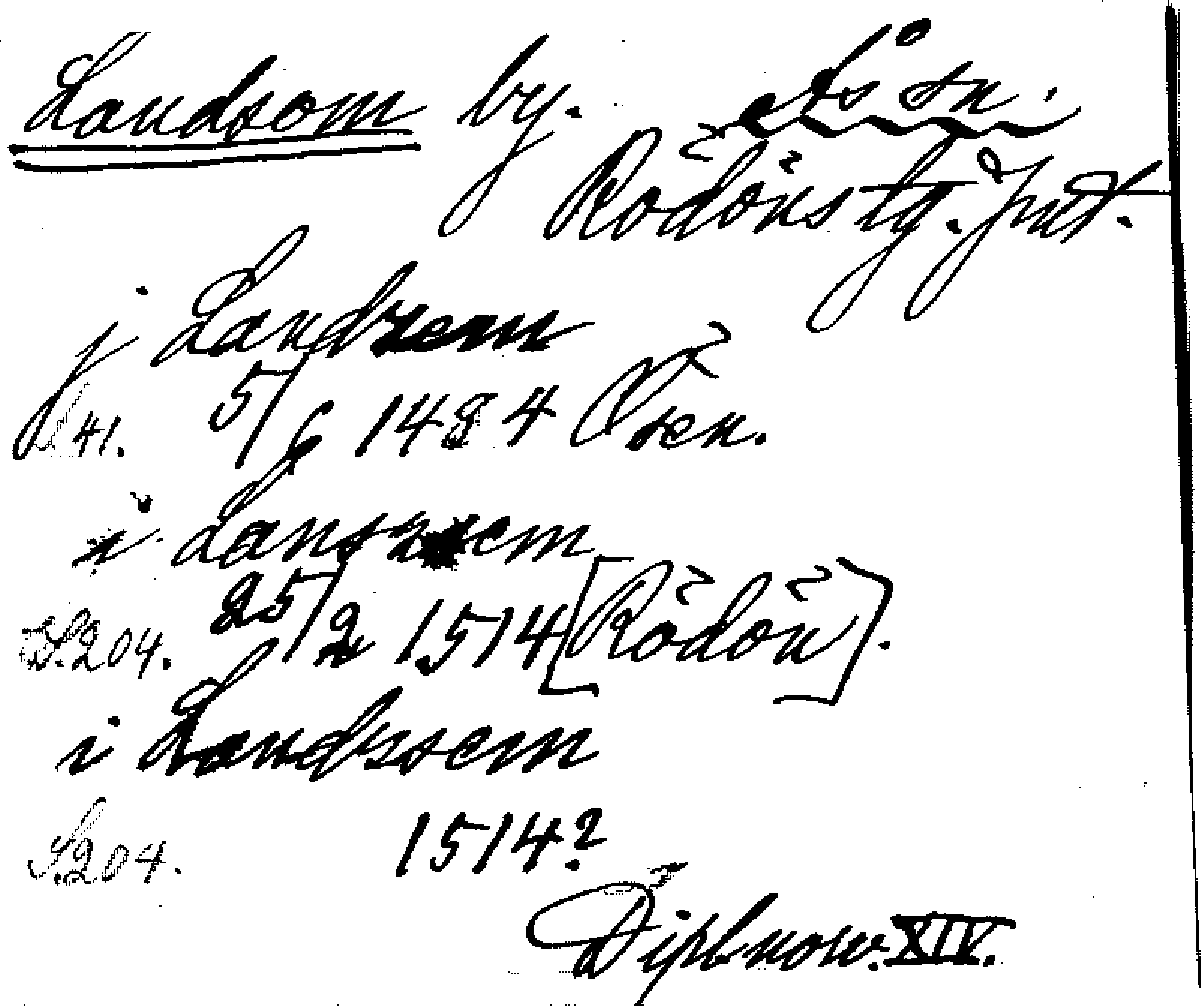 Landsom by. Ås sn.
Rödöns tg. Jmt.
j Landzem
S. 41. 5/6 1484 Ösen.
i Lanszem
S. 204. 25/2 1514 [Rödön].
i Landzsem
S. 204. 1514?
Dipl. norv. XIV.